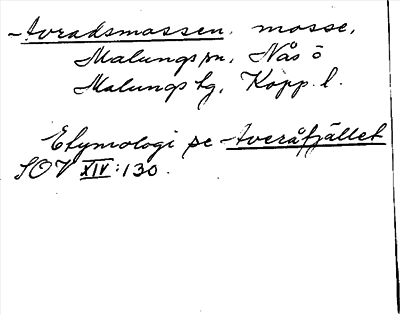 Avradsmossen, mosse,
Malungs sn, Nås o
Malungs tg, Kopp. l.
Etymologi se Averåfjället
SOV XIV:130.